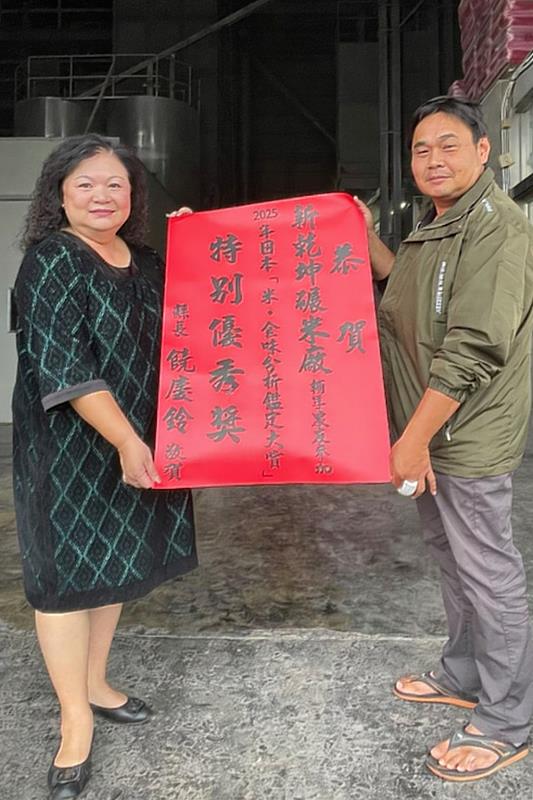 恭賀
新乾坤碾米廠輔導農友參加
2025年日本「米・食味分析鑑定大賞」
特別優秀獎
縣長 饒慶鈴 敬賀